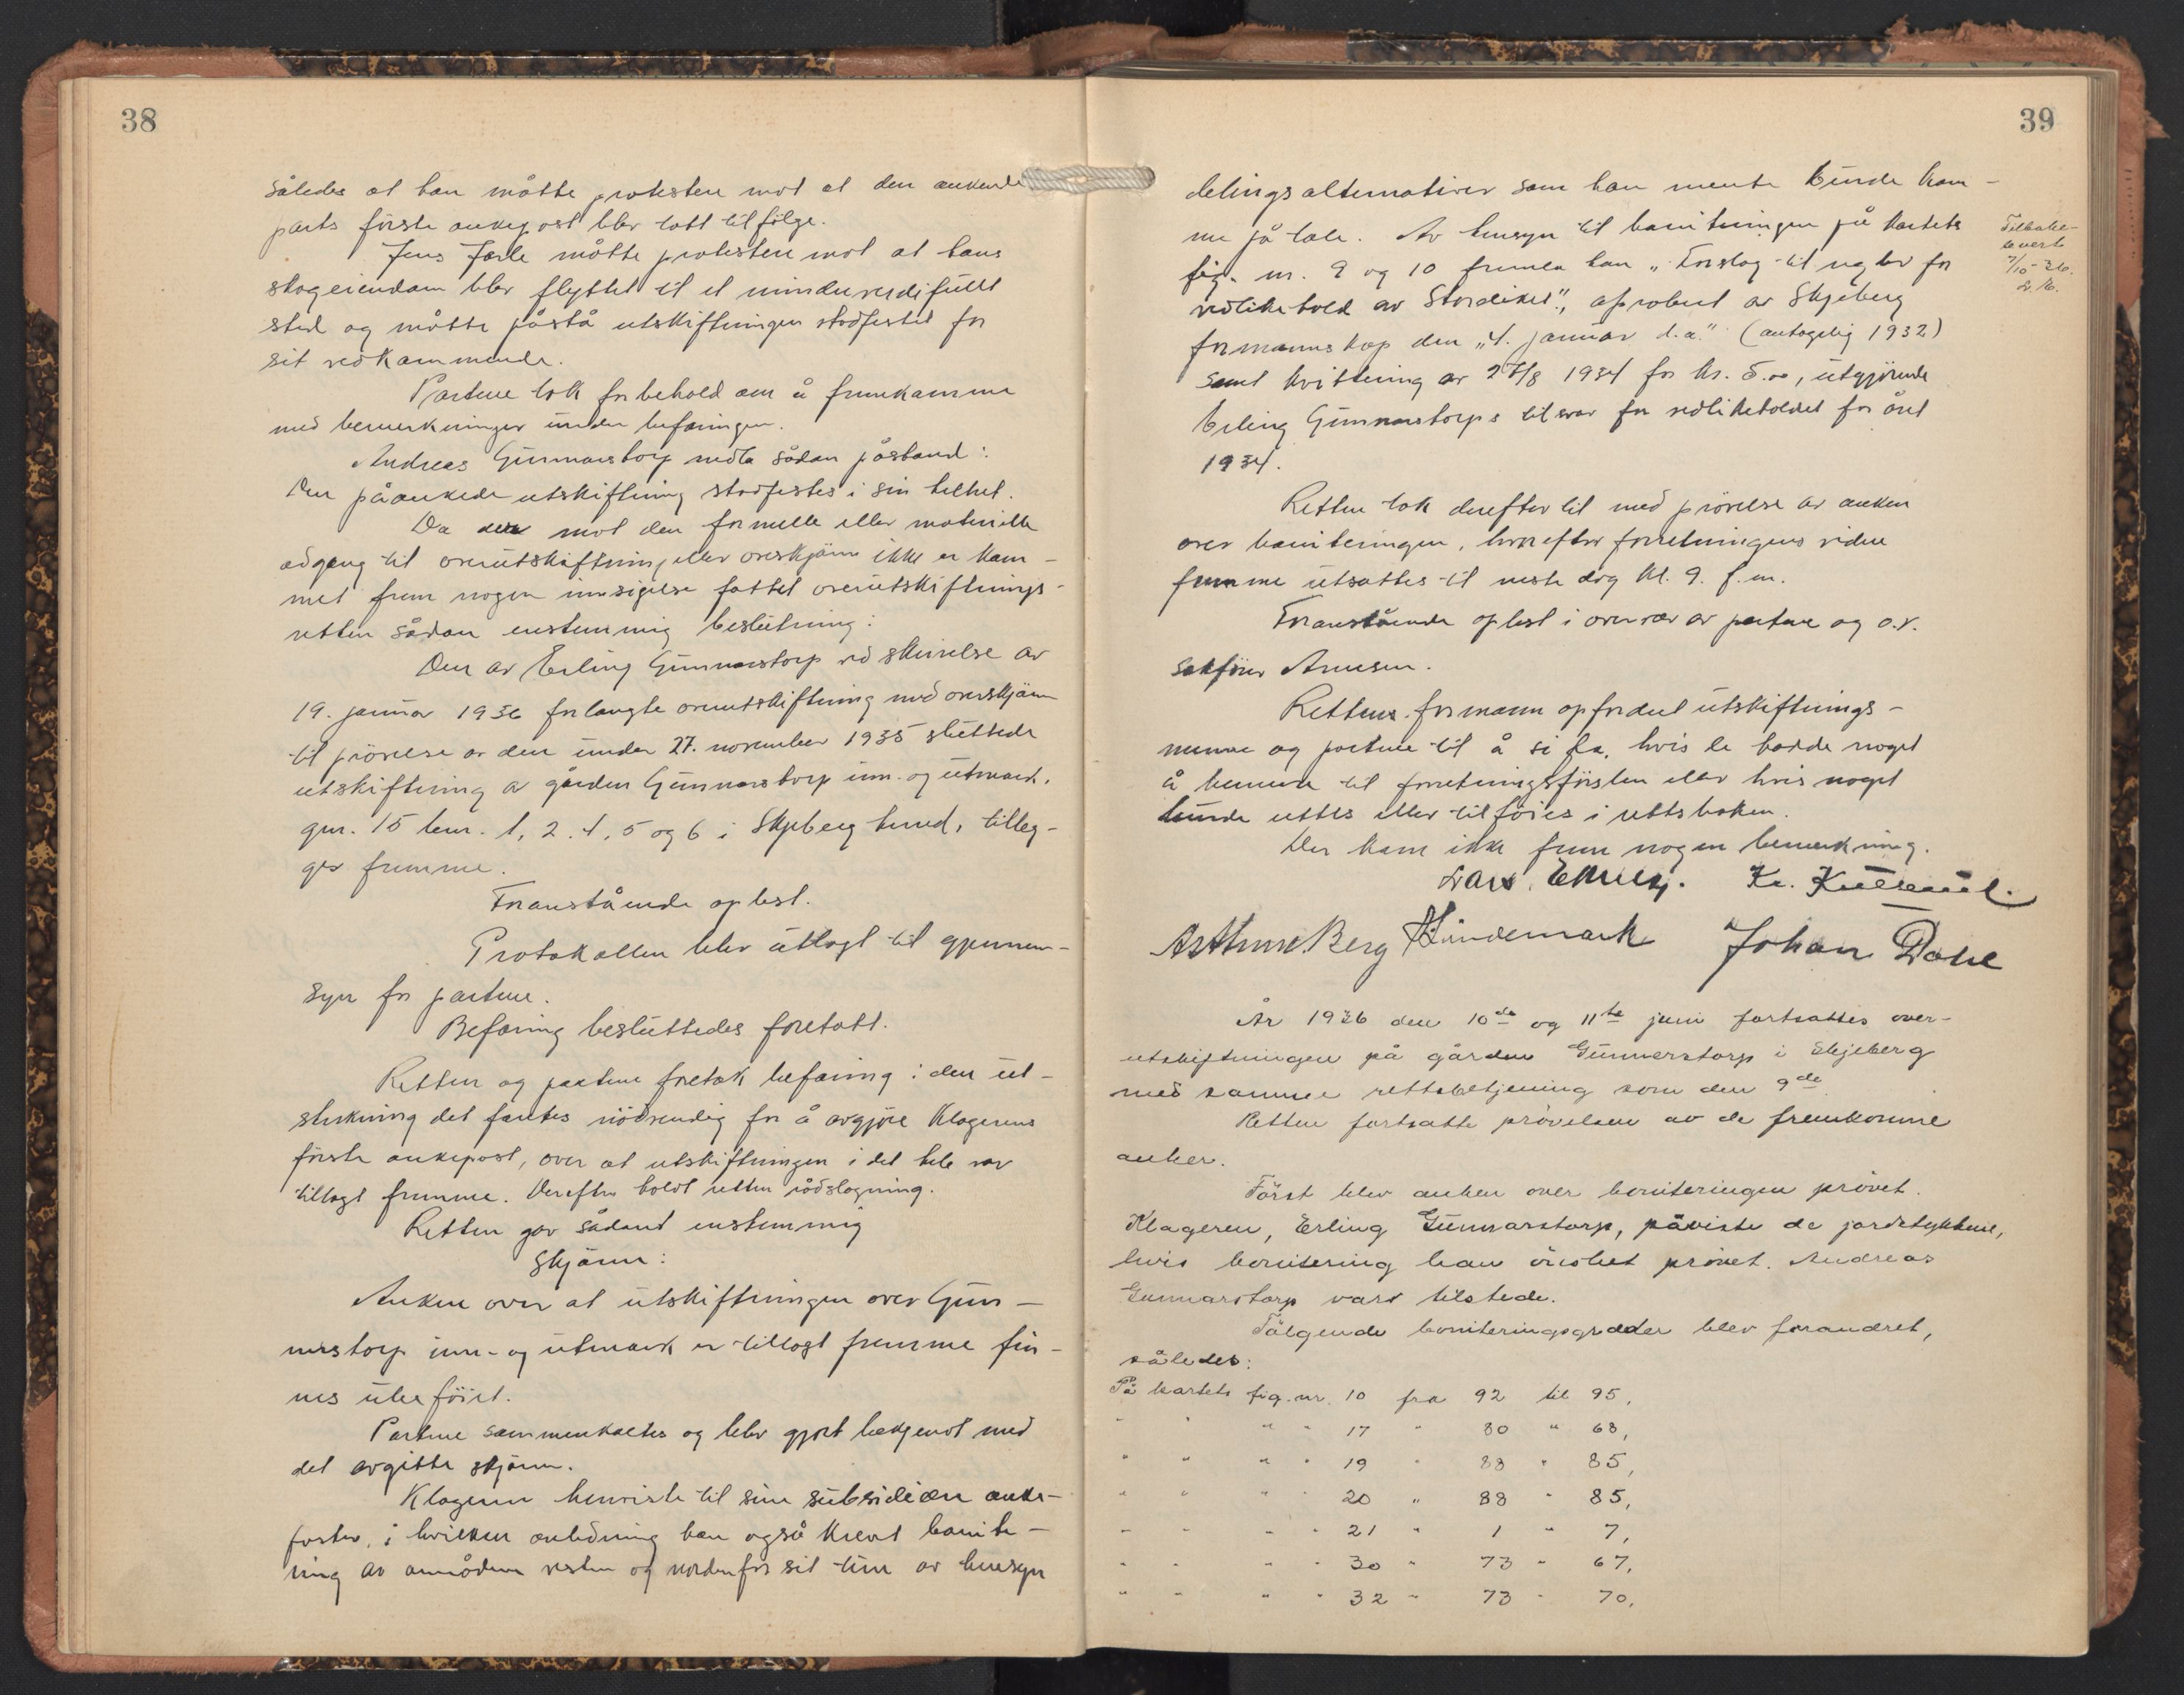 38
således at han måtte protestere mot at den ankende
parts første ankepost blev tatt tilfølge.
Jens Jarle måtte protestere mot at hans
skogeiendom blev flyttet til et mindreverdifullt
sted og måtte påstå utskiftningen stadfestet for
sit vedkommende.
Partene tok forbehold om å fremkomme
med bemerkninger under befaringen.
Andreas Gunnarstorp nedla sådan påstand:
Den påankede utskiftning stadfestes i sin helhet.
Da der mot den formelle eller materielle
adgang til overutskiftning eller overskjønn ikke er kom-
met frem nogen innsigelse fattet overutskiftnings-
retten sådan enstemmig beslutning:
Den av Erling Gunnarstorp ved skrivelse av
19. januar 1936 forlangte overutskiftning med overskjønn
til prövelse av den under 27. november 1935 sluttede
utskiftning av gården Gunnarstorp inn- og utmark,
gnr. 15 bnr. 1, 2, 4, 5 og 6 i Skjeberg herred, tilleg-
ges fremme.
Franstående oplest.
Protokollen blev utlagt til gjennem-
syn for partene.
Befaring besluttedes foretatt.
Retten og partene foretok befaring i den ut-
strekning det fantes nödvendig for å avgjöre klagerens
förste ankepost, over at utskiftningen i det hele var
tillagt fremme. Derefter holdt retten rådslagning.
Retten gav sådant enstemmig
Skjönn:
Anken over at utskiftningen over Gun-
narstorp inn- og utmark er tillagt fremme fin-
nes ubeföiet.
Partene sammenkaltes og blev gjort bekjent med
det avgitte skjönn.
Klageren henviste til sine subsidiære anke-
poster, i hvilken anledning han også krevt bonite-
ring av områdene vesten og nordenfor sit tun av hensyn
39
delingsalternativer som han mente kunde kom-
me på tale. Av hensyn til boniteringen på kartets
fig. nr. 9 og 10 fremla han "Forslag til regler for
vedlikehold av Stordiket", aprobert av Skjeberg
formannskap den "4. januar d.a." (antagelig 1932)
samt kvittering av 27/8 1934 for kr. 5.00, utgjörende
Erling Gunnarstorps tilsvar for vedlikeholdet for året
1934.
Tilbake-
levert
7/10-36.
Retten tok derefter til med prövelse av anken
over boniteringen, hvorefter forretningens videre
fremme utsattes til neste dag kl. 9. f.m.
Franstående oplest i overvær av partene og o.r.
sakförer Arnesen.
Rettens formann opfordret utskiftnings-
mennene og partene til å si fra, hvis de hadde noget
å bemerke til forretningsførslen eller hvis noget
burde rettes eller tilföies i rettsboken.
Der kom ikke frem nogen bemerkning.
Arthur Berg Hindemark Johan Dahl
År 1936 den 10de og 11te juni fortsattes over-
utskiftningen på gården Gunnerstorp i Skjeberg
med samme rettsbetjening som den 9de.
Retten fortsatte prövelsen av de fremkomne
anker.
Först blev anken over boniteringen prövet.
Klageren, Erling Gunnarstorp, påviste de jordstykkene,
hvis bonitering han önsket prövet. Andreas
Gunnarstorp var tilstede.
Fölgende boniteringsgrader blev forandret,
således:
På kartets fig. nr. 10 fra 92 til 95,
" " " " 17 " 80 " 68,
" " " " 19 " 88 " 85,
" " " " 20 " 88 " 85,
" " " " 21 " 1 " 7,
" " " " 30 " 73 " 67,
" " " " 32 " 73 " 70,